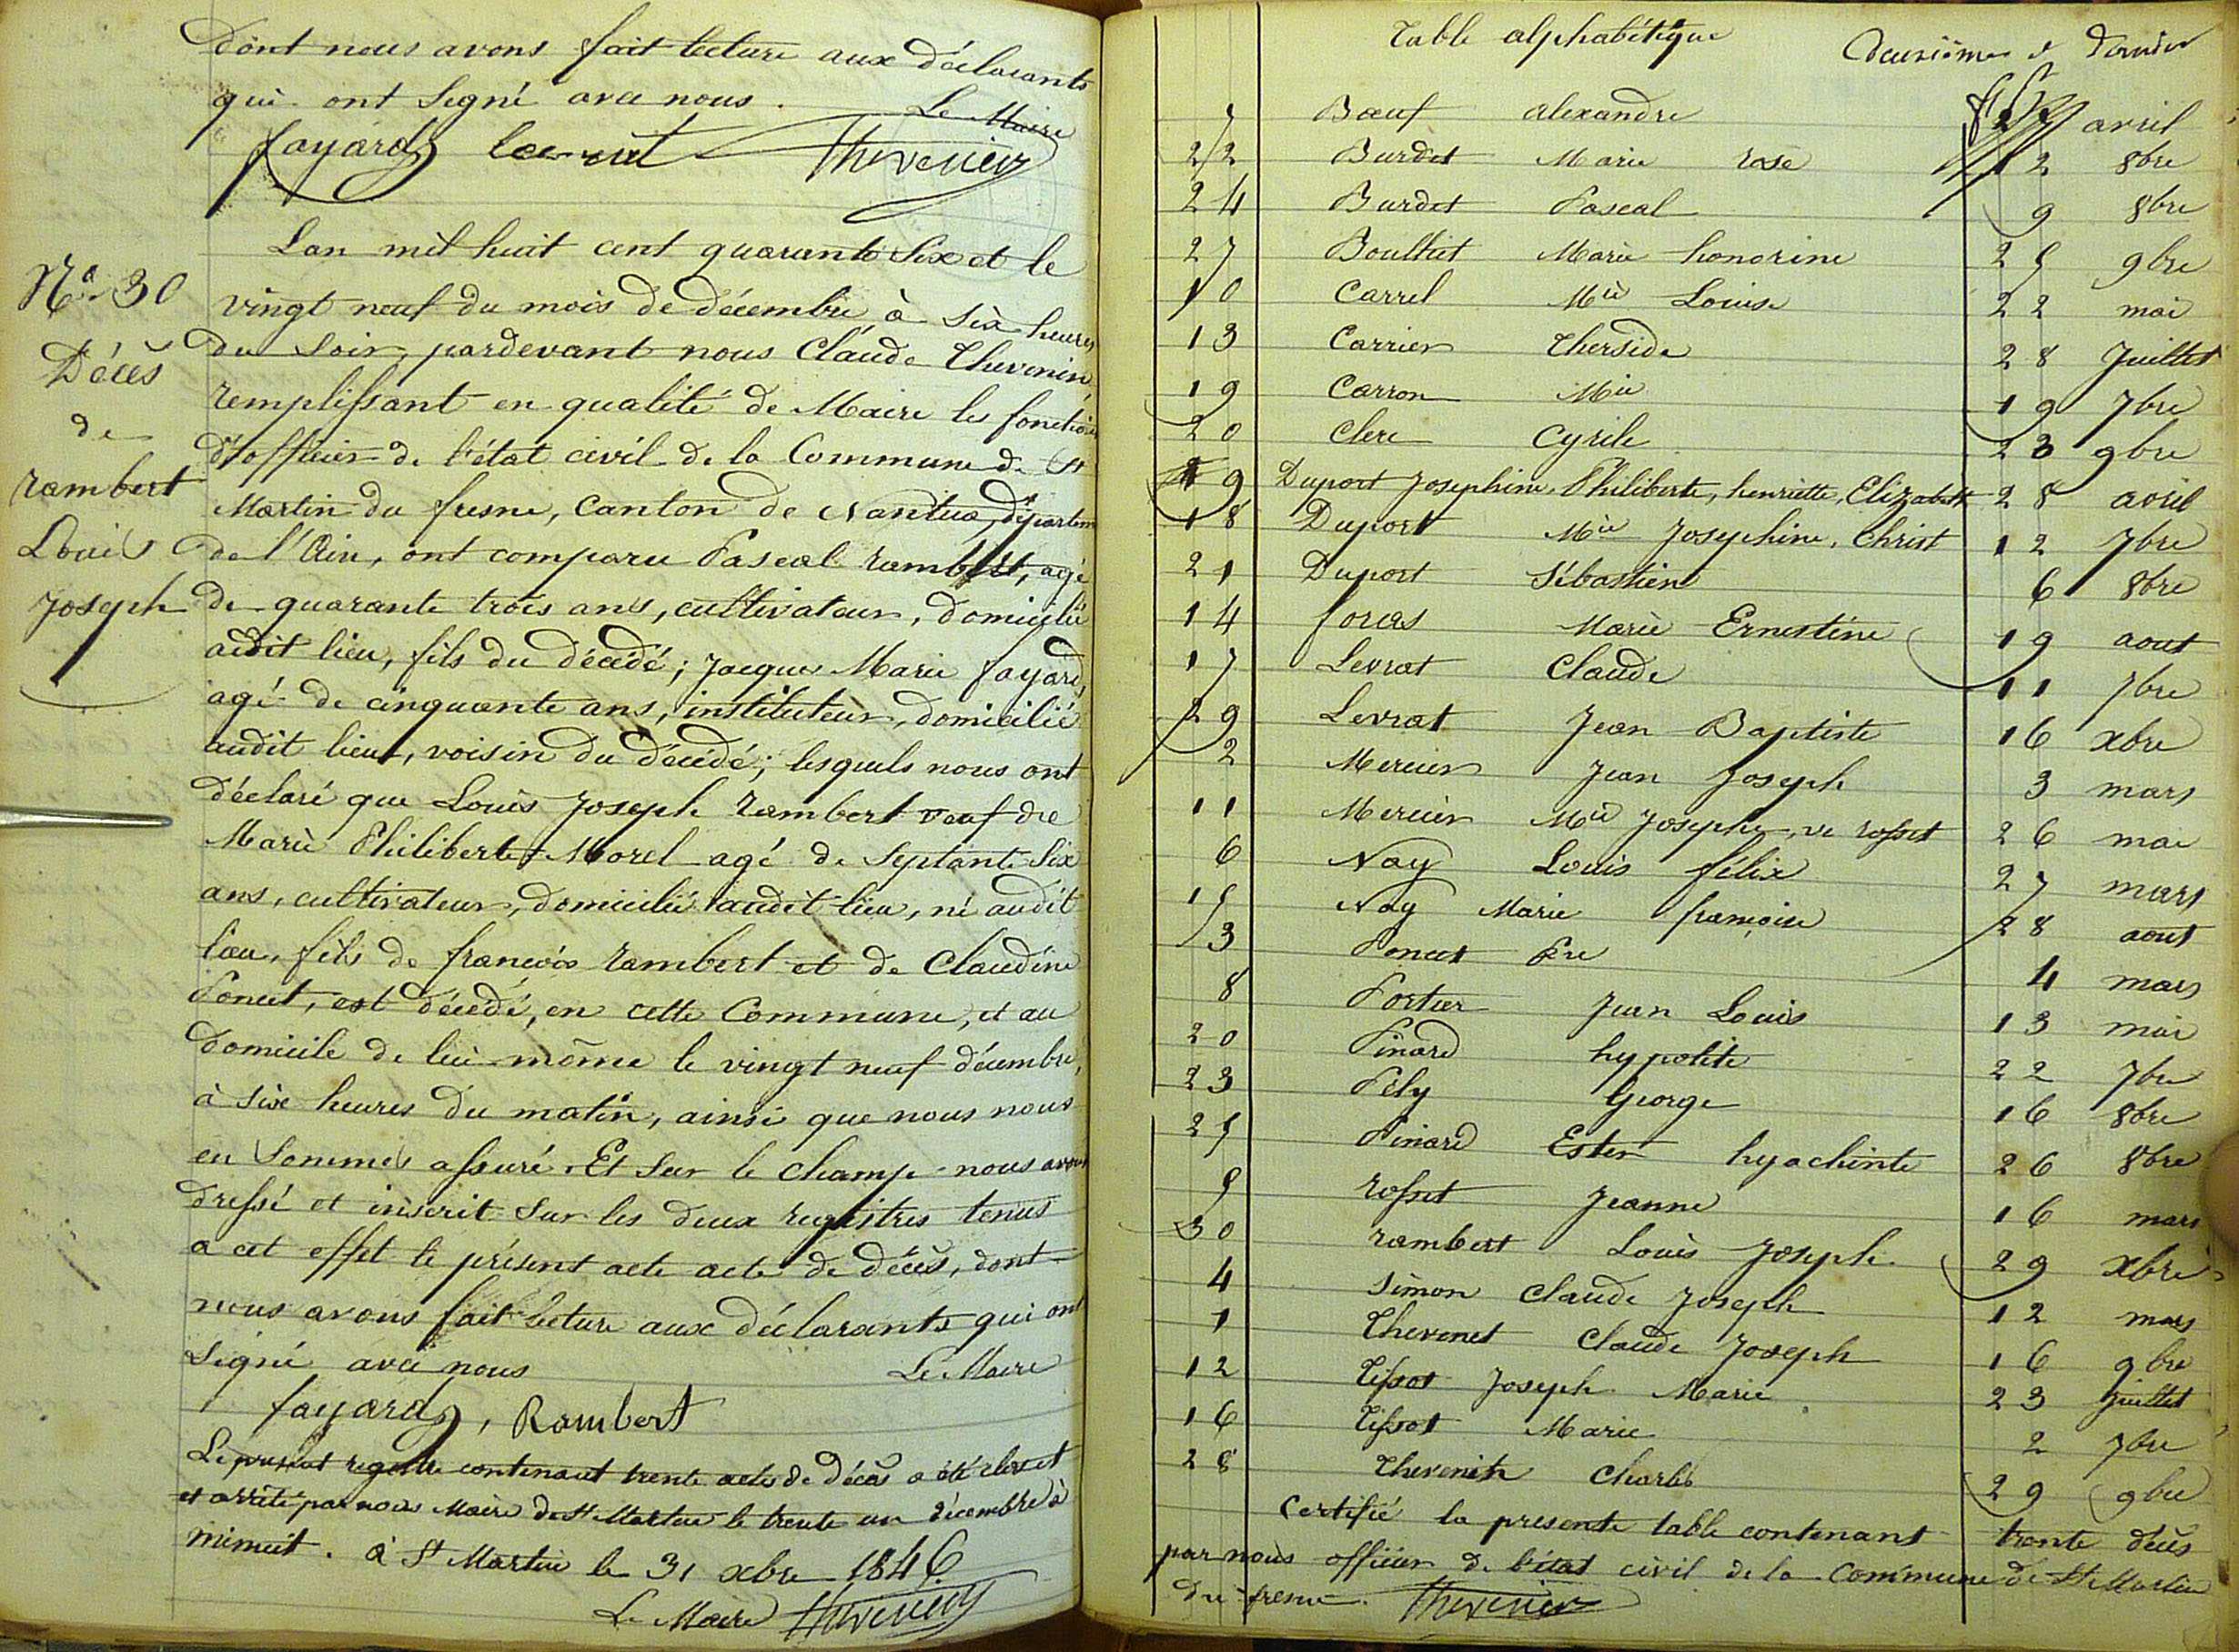 dont nous avons fait lecture aux déclarants
qui ont Signé avec nous.
Le Maire
fayard
Thevenin
Lan mil huit cent quarante Six et le
vingt neuf du mois de décembre à Six heures
du Soir, pardevant nous Claude Thevenin
remplissant en qualité de Maire les fonctions
d'officier de l'état civil de la Commune de St
Martin du fresne, Canton de Nantua, départem
de l'Ain, ont comparu Pascal rambert, agé
de quarante trois ans, cultivateur, domicilié
audit lieu, fils du décédé; Jacques Marie fayard,
agé de cinquante ans, instituteur, domicilié
audit lieu, voisin du décédé; lesquels nous ont
déclaré que Louis Joseph rambert veuf de
Marie Philiberte Morel agé de Septante Six
ans, cultivateur, domicilié audit lieu, né audit
lieu, fils de francois rambert et de Claudine
Poncet, est décédé, en cette Commune, et au
domicile de lui-même le vingt neuf décembre,
à Six heures du matin, ainsi que nous nous
en Sommes assuré. Et Sur le champ nous avons
dressé et inscrit Sur les deux registres tenus
a cet effet le présent acte acte de décès, dont
nous avons fait lecture aux déclarants qui ont
Signé avec nous
Le Maire
fayard, Rambert
Le présent registre contenant trente actes de décès a été clos et
et arrêté par nous Maire de St Martin le trente un décembre à
minuit. à St Martin le 31 xbre 1846
Le Maire Thevenin
No 30
Décès
de
rambert
Louis
Joseph
Table alphabétique
7 Bœuf alexandre avril
22 Burdet Marie rose 12 8bre
24 Burdet Pascal 9 8bre
27 Boulliet Marie honorine 25 9bre
10 Carrel Mie Louise 22 mai
13 Carrier Therside 28 Juillet
19 Carron Mie 19 7bre
20 Clerc Cyrile 23 9bre
9 Duport Josephine, Philiberte, henriette, Elizabeth 28 avril
18 Duport Mie Josephine, Christ 12 7bre
21 Duport Sébastien 6 8bre
14 foras Marie Ernestine 19 aout
17 Levrat Claude 11 7bre
29 Levrat Jean Baptiste 16 xbre
2 Mercier Jean Joseph 3 mars
11 Mercier Mie Josephe, ve rosset 26 mai
6 Nay Louis félix 27 mars
15 Nay Marie françoise 28 aout
3 Poncet Pre 4 mars
8 Portier Jean Louis 13 mai
20 Pinard hypolite 22 7bre
23 Pély George 16 8bre
25 Pinard Ester hyachinte 26 8bre
5 rosset Jeanne 16 mars
30 rambert Louis Joseph 29 xbre
4 Simon Claude Joseph 12 mars
1 Thevenet Claude Joseph 16 9bre
12 Tissot Joseph Marie 23 Juillet
16 Tissot Marie 2 7bre
28 Thevenin Charles 29 9bre
Certifié la presente table contenant trente décès
par nous officier de l'état civil de la Commune de St Martin
du fresne. Thevenin